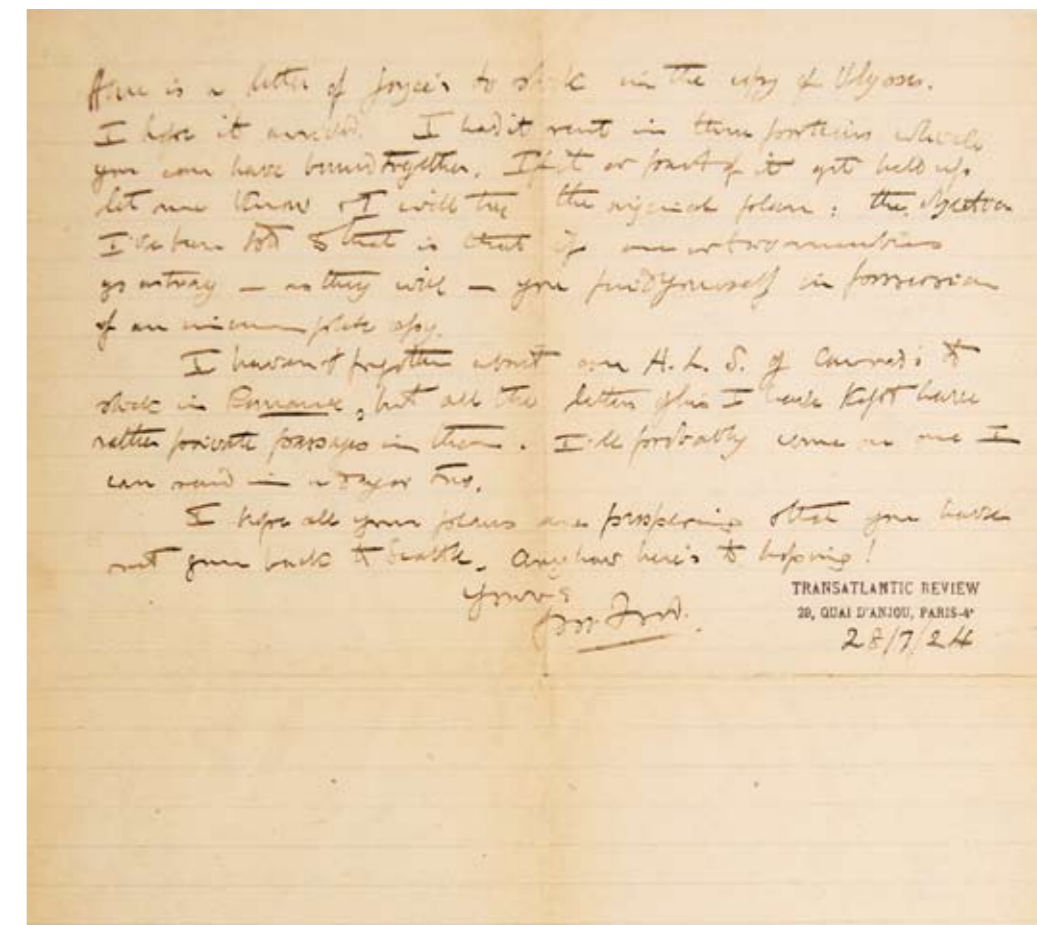 Here is a letter of Joyce's to stick in the copy of Ulysses.
I hope it arrived. I had it sent in three portions which
you can have bound together. If it or part of it get held up,
let me know & I will try the original plan: the objection
I've been told to that is that if one or two numbers
go astray — as they will — you find yourself in possession
of an incomplete copy.
I haven't forgotten about one A. L. S. of Conrad's to
stick in Romance, but all the letters of his I have kept have
rather private passages in them. I'll probably come on one I
can send in a day or two.
I hope all your plans are prospering & that you have
not gone back to Seattle. Anyhow here's to hoping!
Yours
Ford.
TRANSATLANTIC REVIEW
29, QUAI D'ANJOU, PARIS-4e
28/7/24